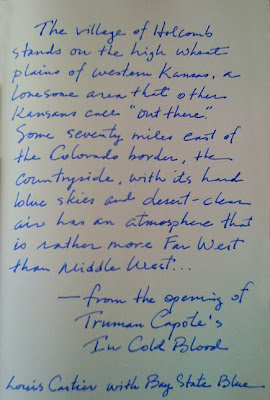 The village of Holcomb
stands on the high wheat
plains of western Kansas, a
lonesome area that other
Kansans call "out there."
Some seventy miles east of
the Colorado border, the
countryside, with its hard
blue skies and desert-clear
air has an atmosphere that
is rather more Far West
than Middle West...
— from the opening of
Truman Capote's
In Cold Blood
Louis Cartier with Bay State Blue